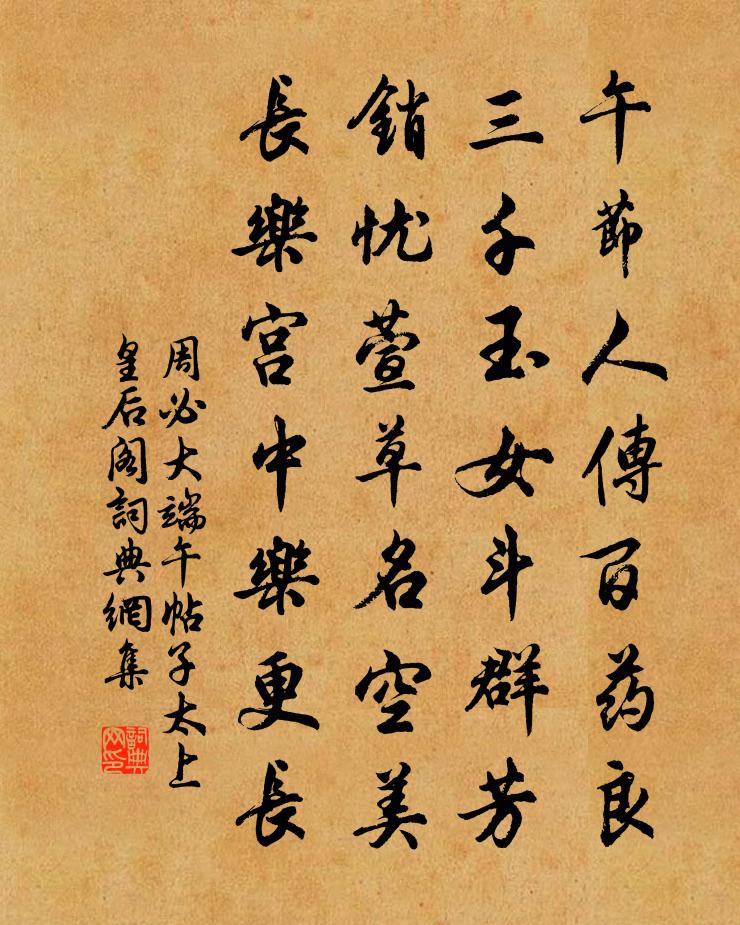 午節人傳百药良
三千玉女斗群芳
銷忧萱草名空美
長樂宫中樂更長
周必大端午帖子太上
皇后阁詞典網集
詞典
网印